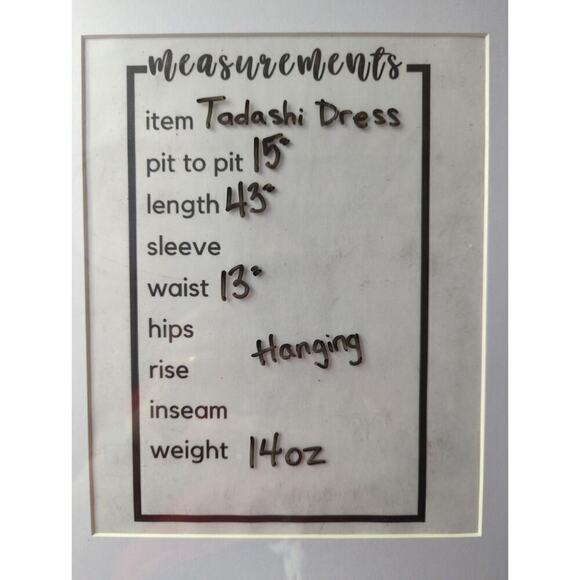 measurements
item Tadashi Dress
pit to pit 15"
length 43"
sleeve
waist 13"
hips
Hanging
rise
inseam
weight 14oz